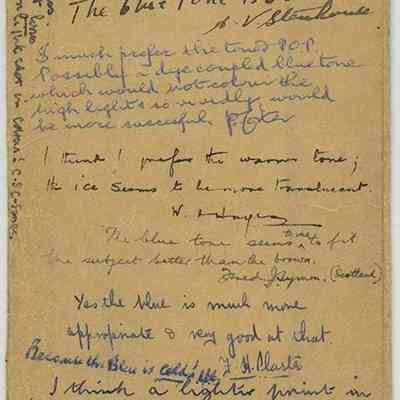 The blue tone is
A. V. Stenhouse
I much prefer the toned P.O.P.
Possibly a dye coupled blue tone
which would not colour the
high lights so vividly, would
be more succesful.
I think I prefer the warmer tone;
the ice seems to be more translucent.
W.
The blue tone seems to fit
the subject better than the brown.
Fred. J. (Scotland)
Yes the blue is much more
appropriate & very good at that.
Because the Blue is cold!
F. H. Clarke
I think a lighter print in